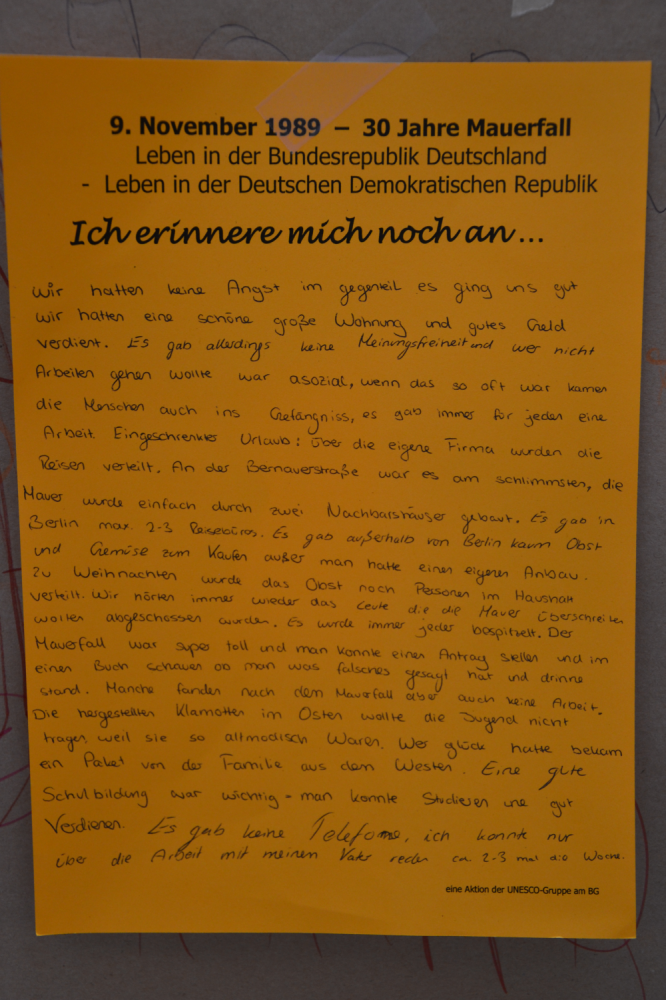 9. November 1989 – 30 Jahre Mauerfall
Leben in der Bundesrepublik Deutschland
- Leben in der Deutschen Demokratischen Republik
Ich erinnere mich noch an ...
Wir hatten keine Angst im gegenteil es ging uns gut
wir hatten eine schöne große Wohnung und gutes Geld
verdient. Es gab allerdings keine Meinungsfreiheit und wer nicht
Arbeiten gehen wollte war asozial, wenn das so oft war kamen
die Menschen auch ins Gefängniss, es gab immer für jeden eine
Arbeit. Eingeschrenkter Urlaub: über die eigene Firma wurden die
Reisen verteilt. An der Bernauerstraße war es am schlimmsten, die
Mauer wurde einfach durch zwei Nachbarshäuser gebaut. Es gab in
Berlin max. 2-3 Reisebüros. Es gab außerhalb von Berlin kaum Obst
und Gemüse zum Kaufen außer man hatte einen eigenen Anbau.
Zu Weihnachten wurde das Obst nach Personen im Haushalt
verteilt. Wir hörten immer wieder das Leute die die Mauer überschreiten
wollten abgeschossen wurden. Es wurde immer jeder bospitzelt. Der
Mauerfall war super toll und man konnte einen Antrag stellen und im
einen Buch schauen ob man was falsches gesagt hat und drinne
stand. Manche fanden nach dem Mauerfall aber auch keine Arbeit.
Die hergestellten Klamotten im Osten wollte die Jugend nicht
tragen weil sie so altmodisch waren. Wer glück hatte bekam
ein Paket von der Familie aus dem Westen. Eine gute
Schulbildung war wichtig - man konnte Studieren und gut
Verdienen. Es gab keine Telefone, ich konnte nur
über die Arbeit mit meinem Vater reden ca. 2-3 mal die Woche.
eine Aktion der UNESCO-Gruppe am BG